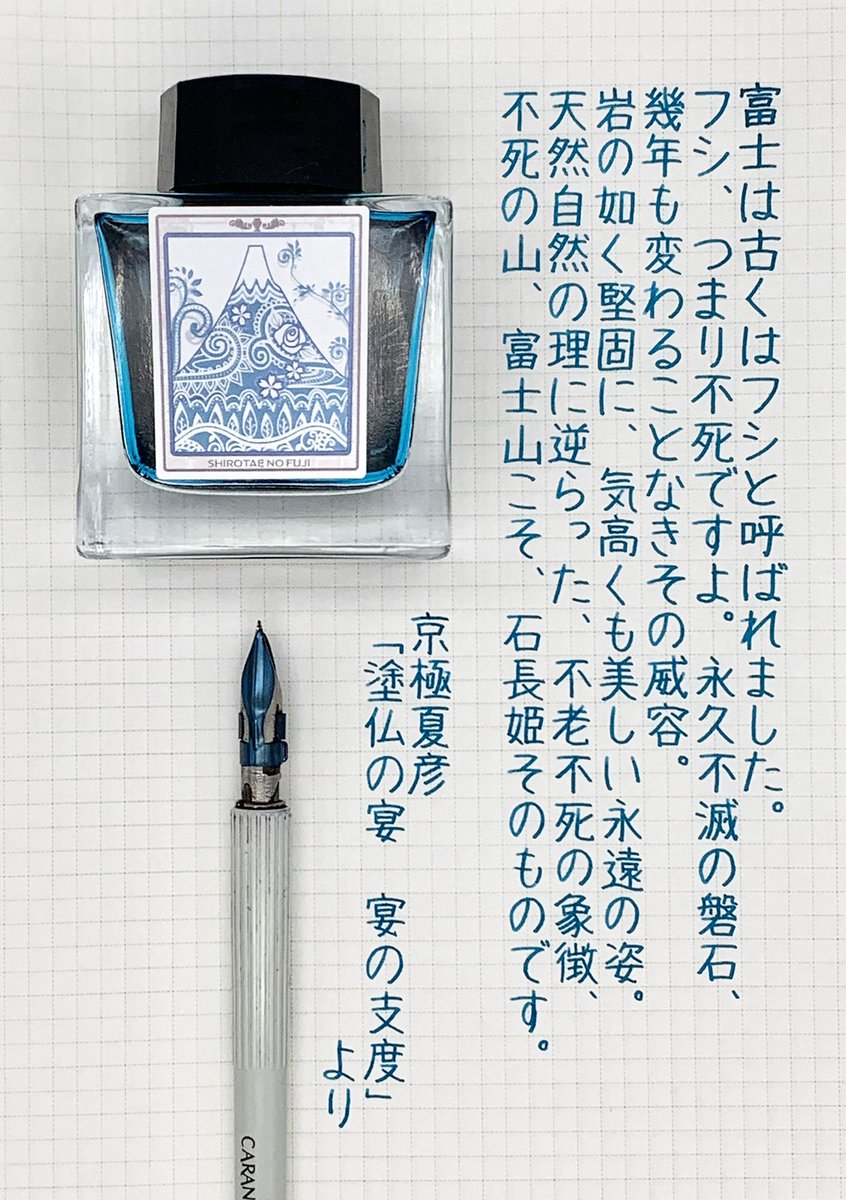 富士は古くはフシと呼ばれました。
フシ、つまり不死ですよ。永久不滅の磐石、
幾年も変わることなきその威容。
岩の如く堅固に、気高くも美しい永遠の姿。
天然自然の理に逆らった、不老不死の象徴、
不死の山、富士山こそ、石長姫そのものです。
京極夏彦
「塗仏の宴　宴の支度」
より
SHIROTAE NO FUJI
CARAN